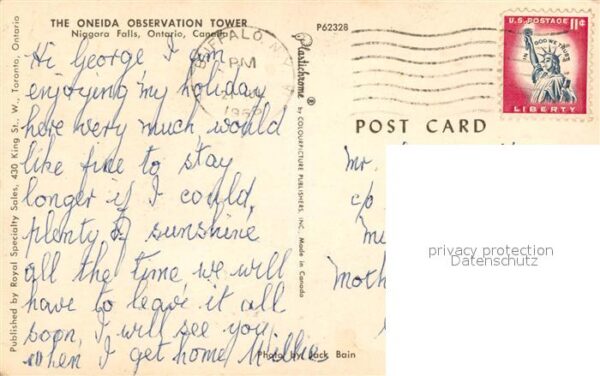 THE ONEIDA OBSERVATION TOWER
Niagara Falls, Ontario, Canada
P62328
BUFFALO N.Y.
PM
U.S. POSTAGE 11¢
IN GOD WE TRUST
LIBERTY
POST CARD
Hi George I am
enjoying my holiday
here very much, would
like fine to stay
longer if I could,
plenty of sunshine
all the time, we will
have to leave it all
soon, I will see you
when I get home Willie
Mr.
c/o
Mi
Moth
privacy protection
Datenschutz
Photo by Jack Bain
Published by Royal Specialty Sales, 430 King St. W., Toronto, Ontario
Plastichrome ® by COLOURPICTURE PUBLISHERS, INC. Made in Canada